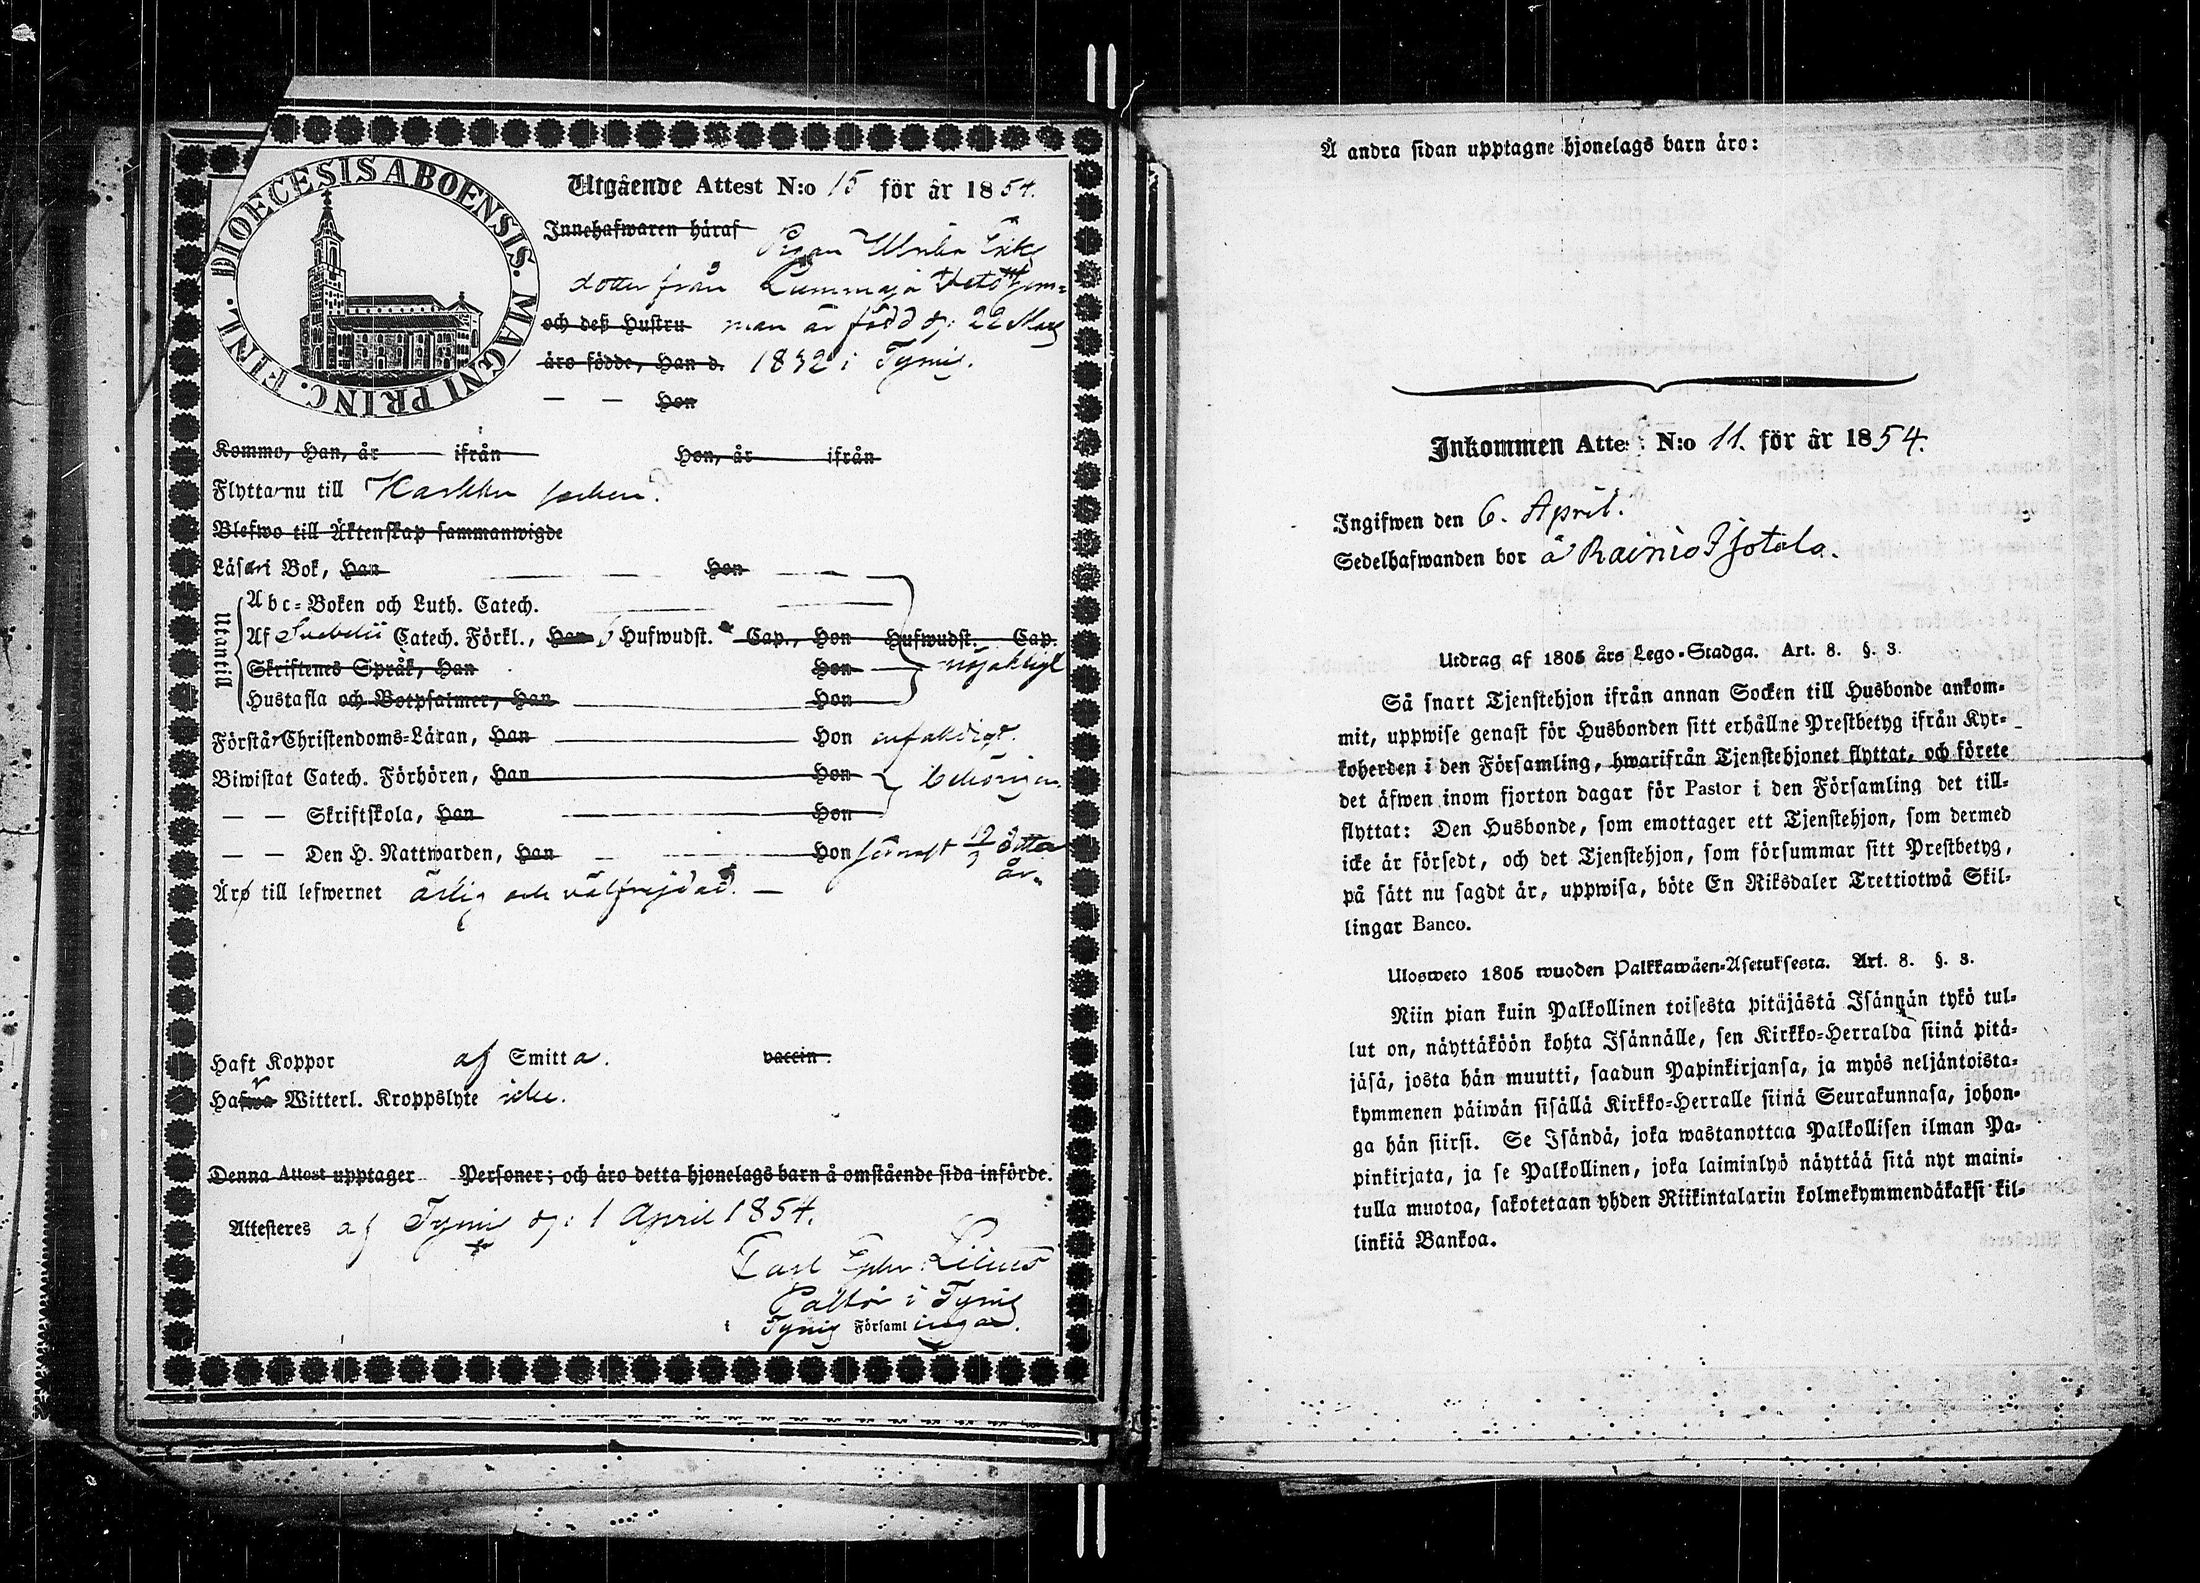 DIOECESIS ABOENSIS. MAGNI PRINC. FINL.
Utgående Attest N:o 15 för år 1854.
Innehafwaren häraf Pigan Ulrika Eriks
dotter från Lummaja
och deß Hustru man är född d: 22 Mars
äro födde, Han d. 1832 i Tyrvis.
— — Hon
Kommo, Han, år ifrån Hon, år ifrån
Flyttar nu till Karkku socken.
Blefwo till Äktenskap sammanwigde
Läser i Bok, Han Hon
Utantill
Abc-Boken och Luth. Catech.
Af Svebelii Catech. Förkl., Han 6 Hufwudst. Cap., Hon Hufwudst. Cap.
Skriftenes Språk, Han Hon nöjaktigt
Hustafla och Botpsalmer, Han Hon
Förstår Christendoms-Läran, Han Hon enfaldigt.
Biwistat Catech. Förhören, Han Hon behörigen
— — Skriftskola, Han Hon
— — Den H. Nattwarden, Han Hon senast
år.
Äro till lefwernet ärlig och välfrejdad. —
Haft Koppor af Smitta. vaccin.
Hafwa Witterl. Kroppslyte icke.
Denna Attest upptager Personer; och äro detta hjonelags barn å omstående sida införde.
Attesteres af Tyrvis d: 1 April 1854.
Carl Lilius
Pastor i Tyrvis
i Tyrvis Församlingar.
Å andra sidan upptagne hjonelags barn äro:
Inkommen Attest N:o 11. för år 1854.
Ingifwen den 6. April.
Sedelhafwanden bor å Rainio Isotalo.
Utdrag af 1805 års Lego-Stadga. Art. 8. §. 3.
Så snart Tjenstehjon ifrån annan Socken till Husbonde ankom-
mit, uppwise genast för Husbonden sitt erhållne Prestbetyg ifrån Kyr-
koherden i den Församling, hwarifrån Tjenstehjonet flyttat, och förete
det äfwen inom fjorton dagar för Pastor i den Församling det till-
flyttat: Den Husbonde, som emottager ett Tjenstehjon, som dermed
icke är försedt, och det Tjenstehjon, som försummar sitt Prestbetyg,
på sätt nu sagdt är, uppwisa, böte En Riksdaler Trettiotwå Skil-
lingar Banco.
Ulosweto 1805 wuoden Palkkawäen-Asetuksesta. Art. 8. §. 3.
Niin pian kuin Palkollinen toisesta pitäjästä Isännän tykö tul-
lut on, näyttäköön kohta Isännälle, sen Kirkko-Herralda siinä pitä-
jäsä, josta hän muutti, saadun Papinkirjansa, ja myös neljäntoista-
kymmenen päiwän sisällä Kirkko-Herralle siinä Seurakunnasa, johon-
ga hän siirsi. Se Isändä, joka wastanottaa Palkollisen ilman Pa-
pinkirjata, ja se Palkollinen, joka laiminlyö näyttää sitä nyt maini-
tulla muotoa, sakotetaan yhden Riikintalarin kolmekymmendäkaksi kil-
linkiä Bankoa.